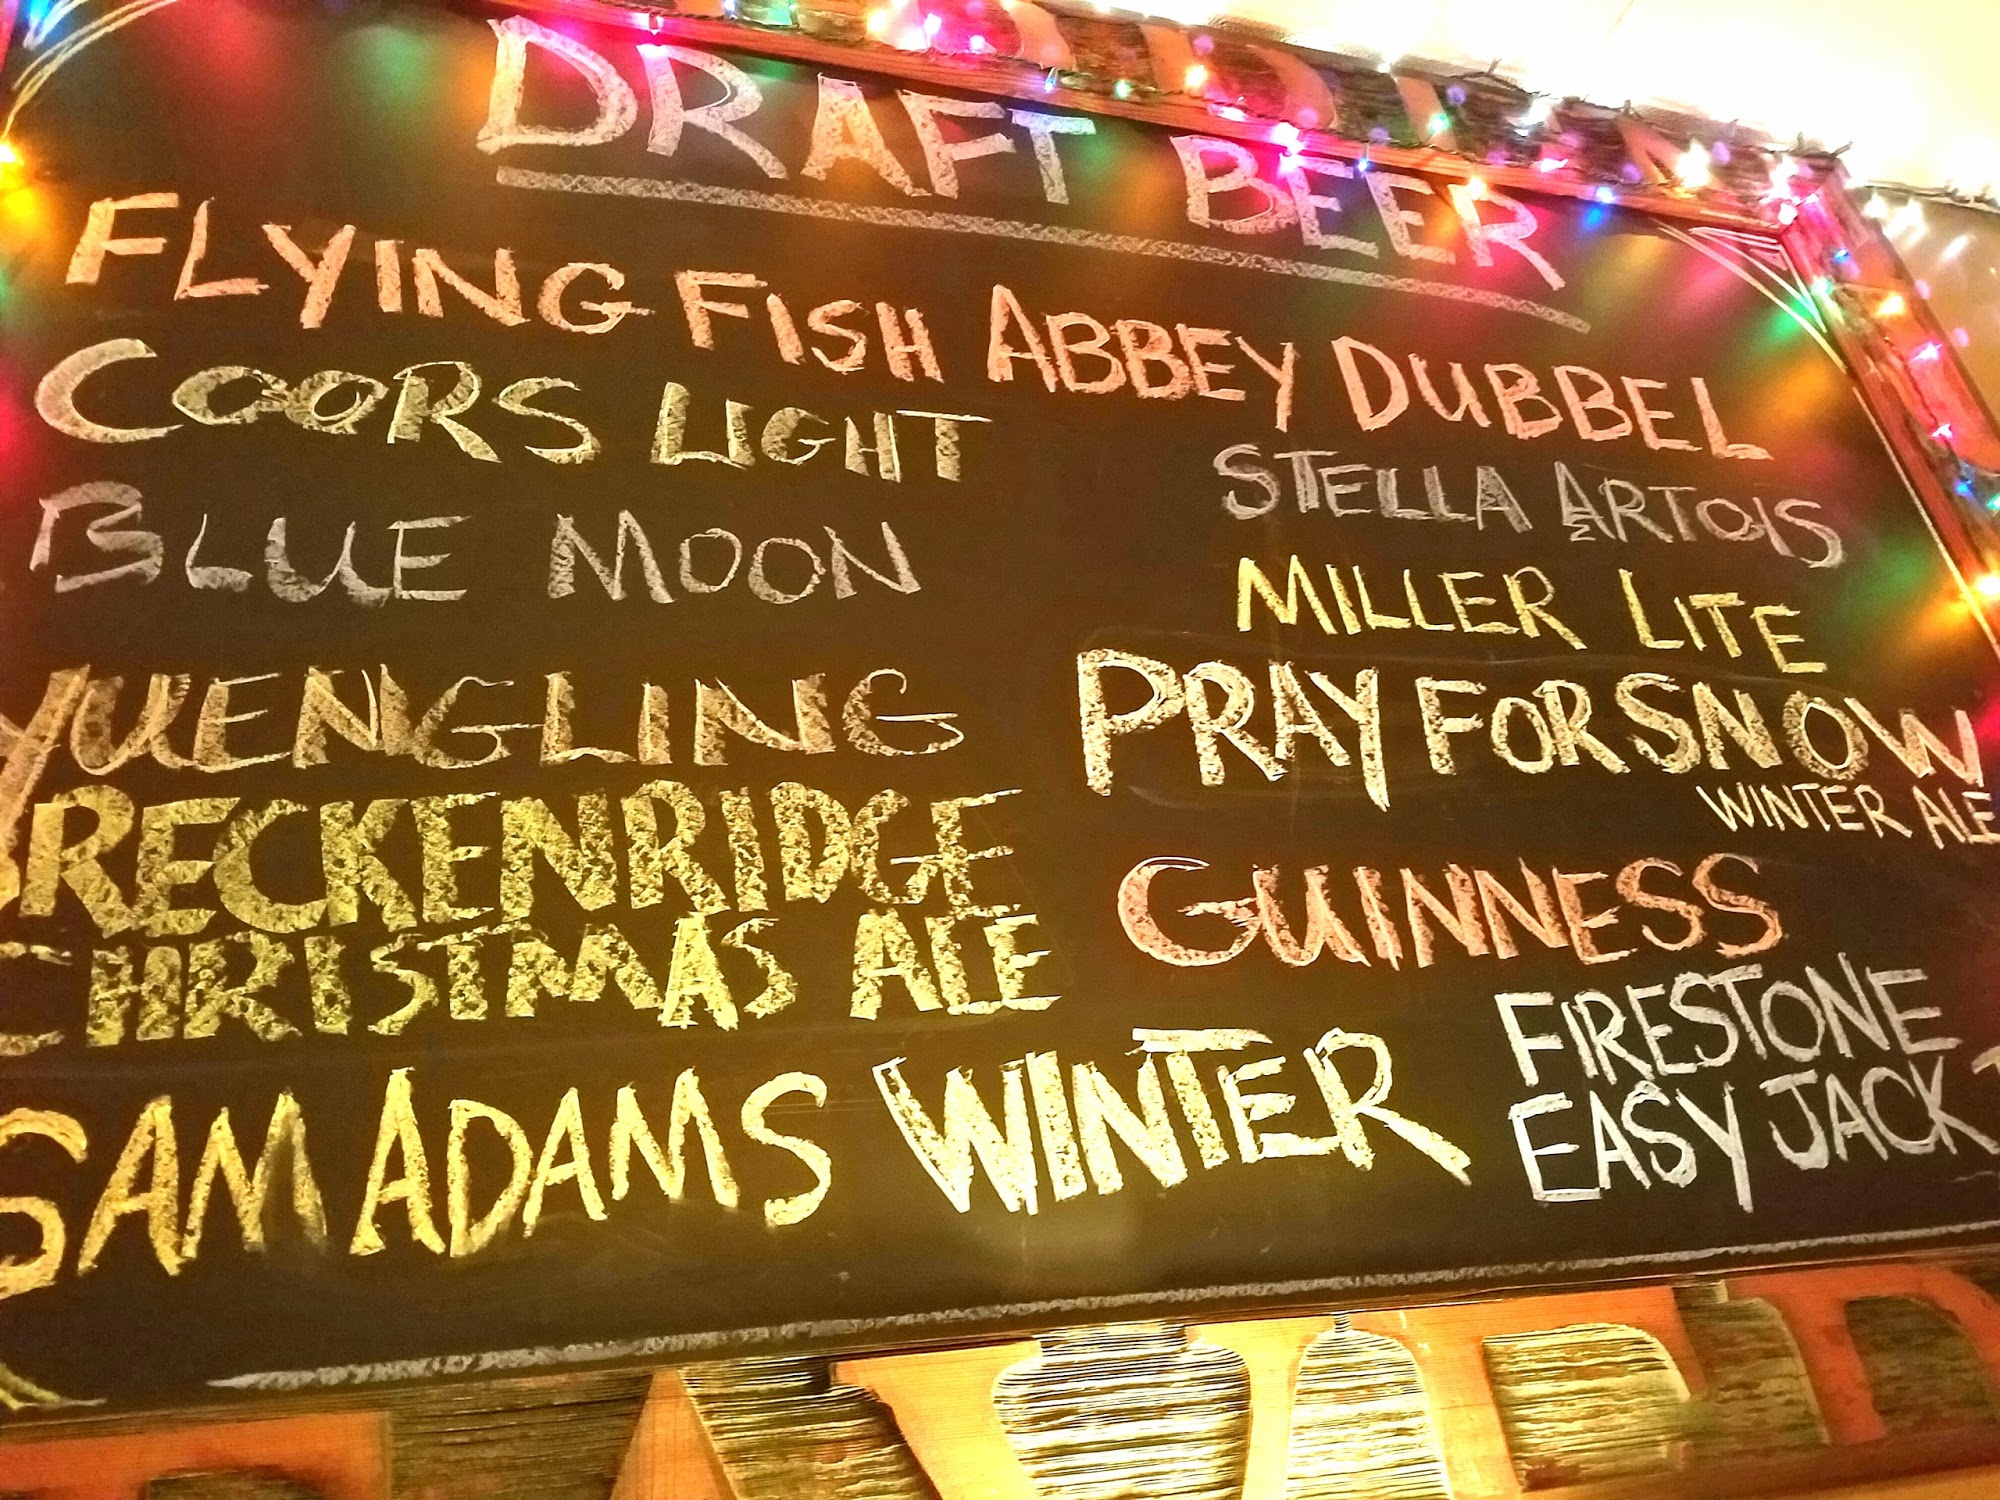 DRAFT BEER
FLYING FISH ABBEY DUBBEL
COORS LIGHT
STELLA ARTOIS
BLUE MOON
MILLER LITE
YUENGLING
PRAY FOR SNOW
WINTER ALE
BRECKENRIDGE
CHRISTMAS ALE
GUINNESS
SAM ADAMS WINTER
FIRESTONE
EASY JACK